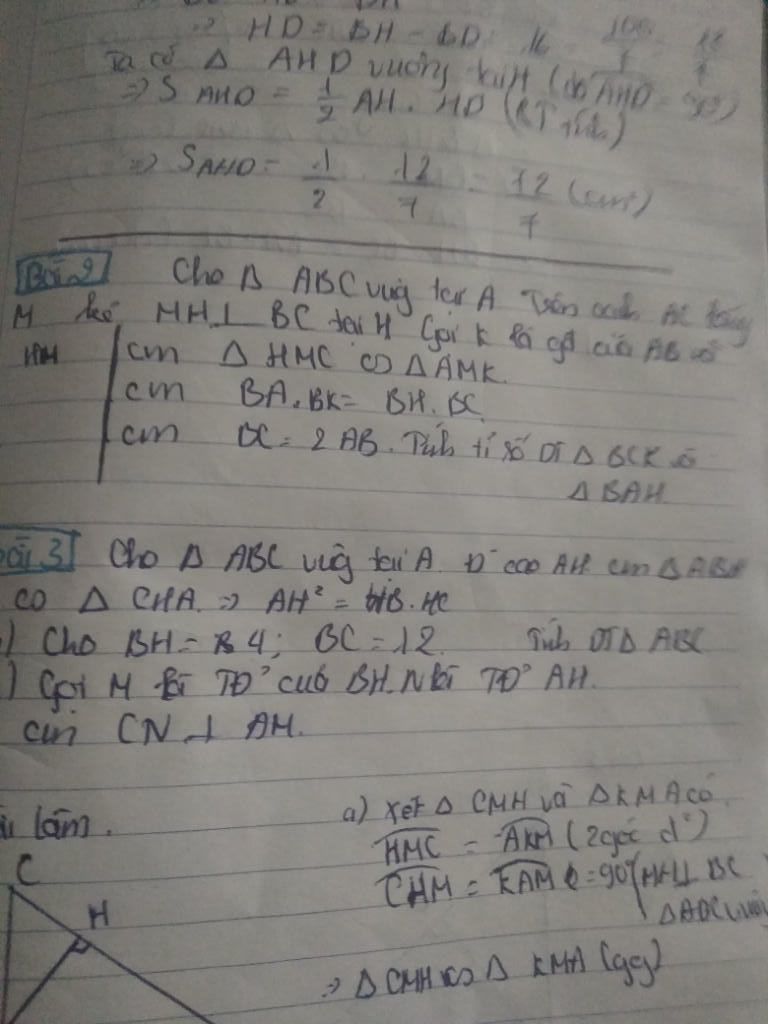 => HD = BH - BD
Ta có Δ AHD vuông tại H (do AHD = 90°)
=> S AHD = 1/2 AH. HD (CT tính)
=> SAHD = 1/2 . 12/7 = 12/7 (cm²)
Bài 2 Cho Δ ABC vuôg tại A Trên cạnh AC
M kẻ MH⊥ BC tại H Gọi K là gđ của AB và
HM cm Δ HMC ∽ ΔAMK.
cm BA.BK = BH.BC
cm BC = 2 AB. Tính tỉ số DT Δ BCK và
Δ BAH
Bài 3 Cho Δ ABC vuôg tại A Đ cao AH cm Δ ABH
∽ Δ CHA. => AH² = HB.HC
) Cho BH = 4; BC = 12. Tính DTΔ ABC
) Gọi M là TĐ' của BH. N là TĐ' AH.
cm CN ⊥ AM.
làm.
a) Xét Δ CMH và ΔKMA có
HMC = AKM (2 góc đ²)
CHM = KAM (=90° MH⊥ BC
ΔABC vuôg
C
H
=> Δ CMH ∽ Δ KMA (gg)